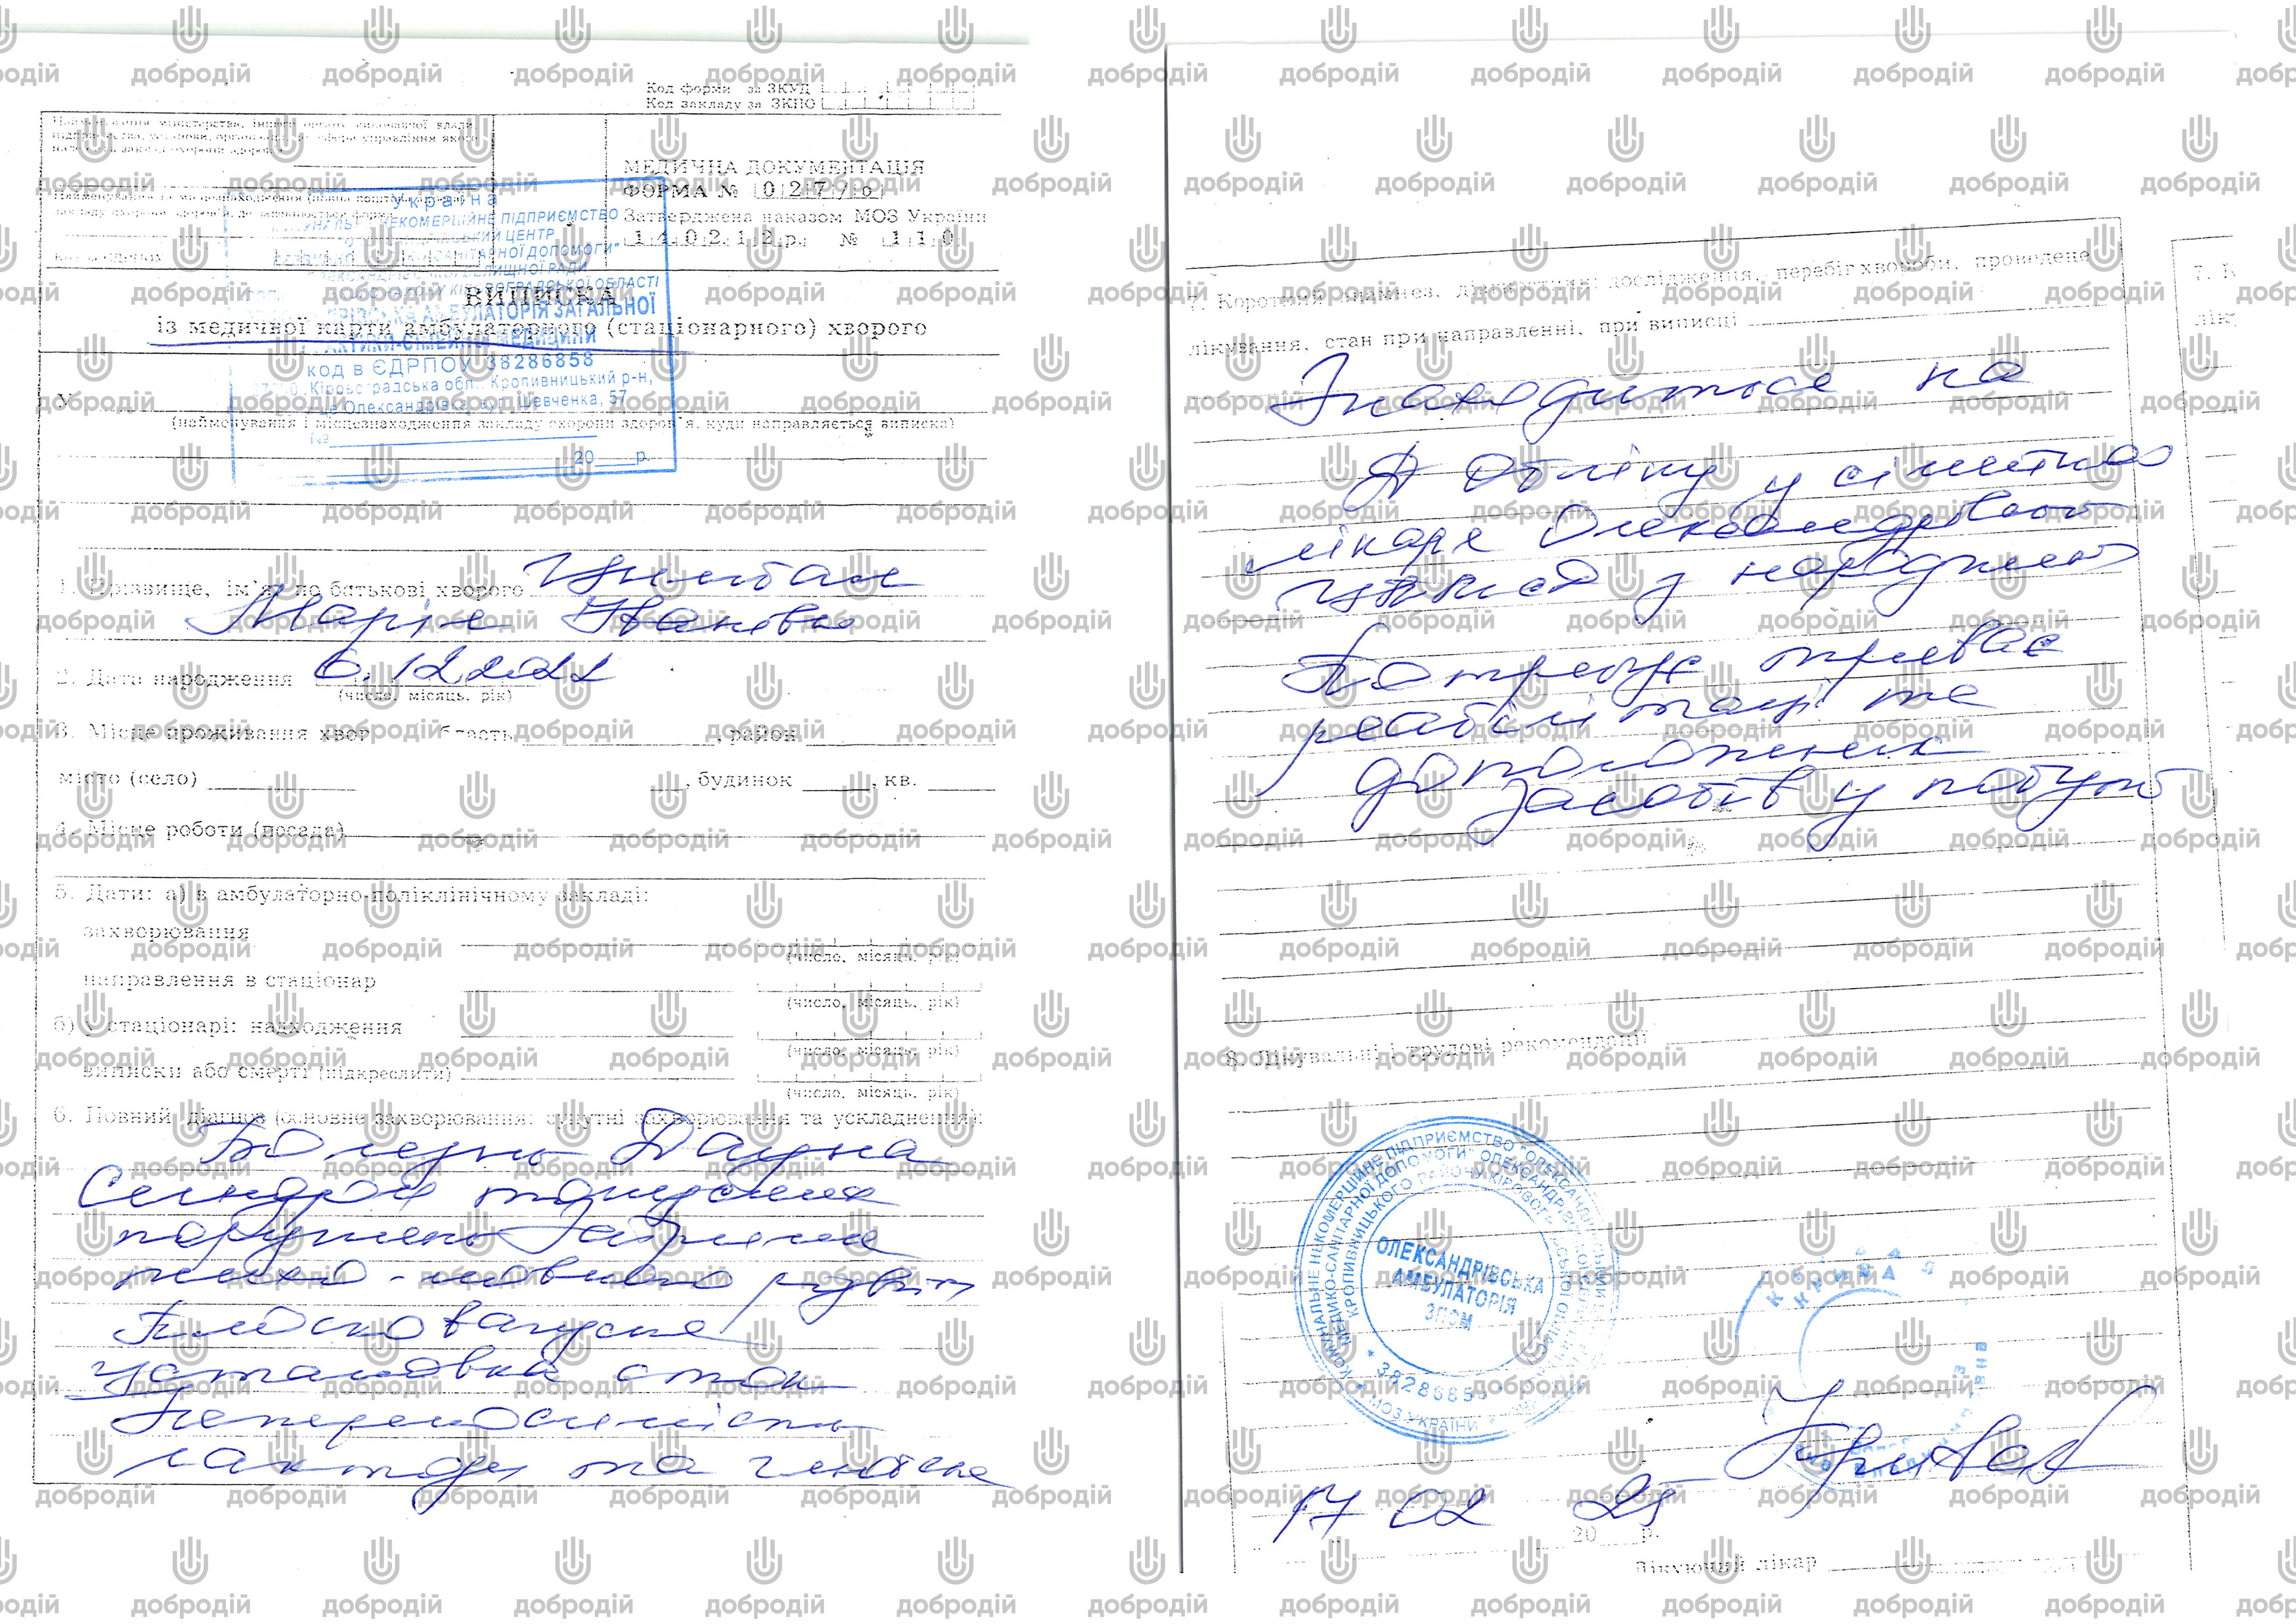 Код форми за ЗКУД
Код закладу за ЗКПО
Найменування міністерства, іншого органу виконавчої влади,
підприємства, установи, організації, до сфери управління якого
належить заклад охорони здоров'я
МЕДИЧНА ДОКУМЕНТАЦІЯ
ФОРМА № 027/о
Затверджена наказом МОЗ України
14.02.12р. № 110
Україна
НЕКОМЕРЦІЙНЕ ПІДПРИЄМСТВО
ЦЕНТР
САНІТАРНОЇ ДОПОМОГИ"
СЕЛИЩНОЇ РАДИ
КІРОВОГРАДСЬКОЇ ОБЛАСТІ
АМБУЛАТОРІЯ ЗАГАЛЬНОЇ
ПРАКТИКИ-СІМЕЙНОЇ МЕДИЦИНИ
код в ЄДРПОУ 38286858
Кіровоградська обл., Кропивницький р-н,
Олександрівка, вул. Шевченка, 57
№
20 р.
ВИПИСКА
із медичної карти амбулаторного (стаціонарного) хворого
У
(найменування і місцезнаходження закладу охорони здоров'я, куди направляється виписка)
1. Прізвище, ім'я, по батькові хворого
Марія Іванівна
2. Дата народження 6.12.2022
(число, місяць, рік)
3. Місце проживання область , район
місто (село) , будинок , кв.
4. Місце роботи (посада)
5. Дати: а) в амбулаторно-поліклінічному закладі:
захворювання
(число, місяць, рік)
направлення в стаціонар
(число, місяць, рік)
б) у стаціонарі: надходження
(число, місяць, рік)
виписки або смерті (підкреслити)
(число, місяць, рік)
6. Повний діагноз (основне захворювання; супутні захворювання та ускладнення):
Болезнь Дауна
Синдром тонусних
порушень Затримка
психо-мовного розвит
Плосковальгусна
установка стоп
Непереносимість
лактози та глютена
7. Короткий анамнез, діагностичні дослідження, перебіг хвороби, проведене
лікування, стан при направленні, при виписці
Знаходиться на
Д обліку у сімейного
лікаря Олександрівської
з народження
Потребує тривалє
реабілітації та
допоміжних
засобів у побуті
8. Лікувальні і трудові рекомендації
КОМУНАЛЬНЕ НЕКОМЕРЦІЙНЕ ПІДПРИЄМСТВО "ОЛЕКСАНДРІВСЬКИЙ
МЕДИКО-САНІТАРНОЇ ДОПОМОГИ"
КРОПИВНИЦЬКОГО РАЙОНУ КІРОВОГРАДСЬКОЇ ОБЛАСТІ
ОЛЕКСАНДРІВСЬКА
АМБУЛАТОРІЯ
ЗПСМ
* 38286858
МОЗ УКРАЇНИ
КРИВА
17 02 25
20 р.
Лікуючий лікар
7. К
лік
добродій